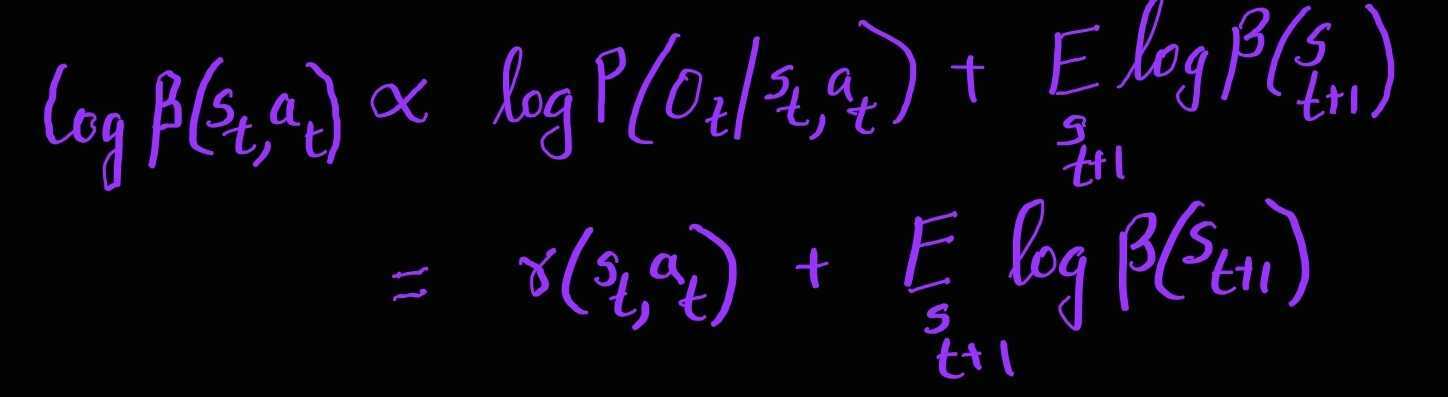 log β(s_t, a_t) ∝ log P(O_t | s_t, a_t) + E_{s_{t+1}} log β(s_{t+1})
= r(s_t, a_t) + E_{s_{t+1}} log β(s_{t+1})